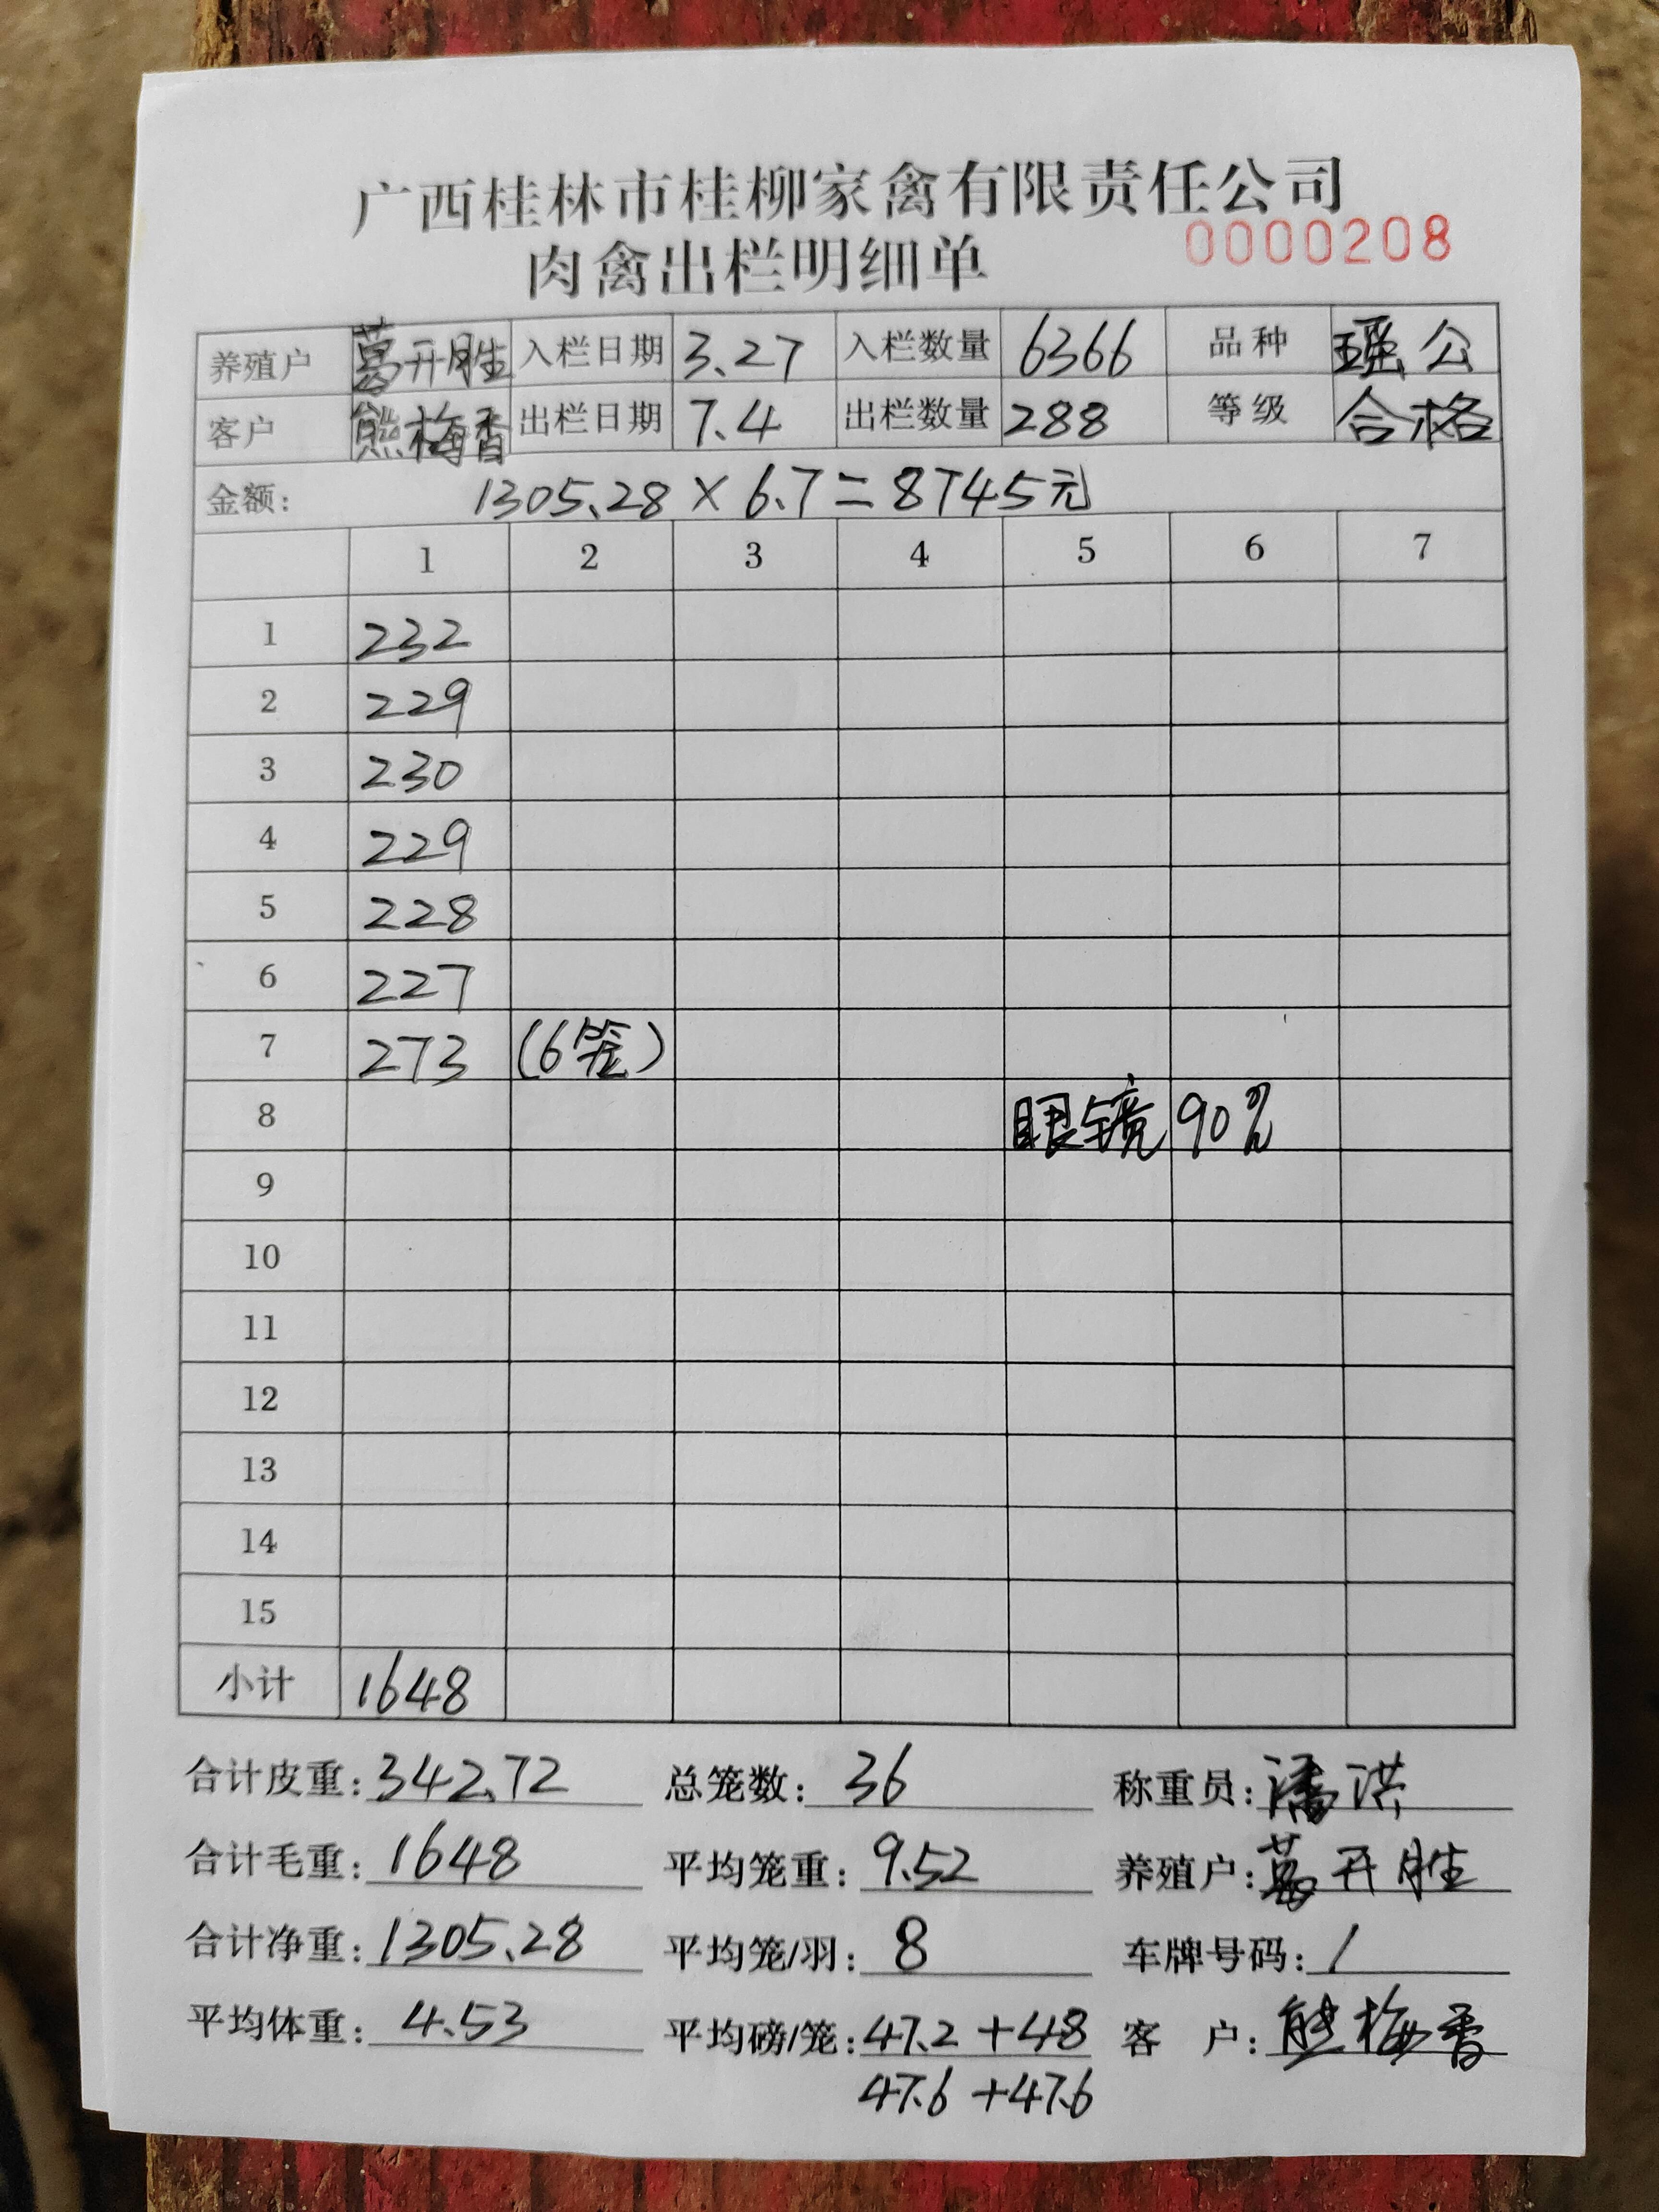 广西桂林市桂柳家禽有限责任公司
肉禽出栏明细单 0000208
养殖户 葛开胜 入栏日期 3.27 入栏数量 6366 品种 瑶公
客户 熊梅香 出栏日期 7.4 出栏数量 288 等级 合格
金额: 1305.28 × 6.7 = 8745元
1 2 3 4 5 6 7
1 232
2 229
3 230
4 229
5 228
6 227
7 273 (6笼)
8 眼镜 90%
9
10
11
12
13
14
15
小计 1648
合计皮重: 342.72 总笼数: 36 称重员: 潘洪
合计毛重: 1648 平均笼重: 9.52 养殖户: 葛开胜
合计净重: 1305.28 平均笼/羽: 8 车牌号码: /
平均体重: 4.53 平均磅/笼: 47.2 +48 客 户: 熊梅香
47.6 +47.6